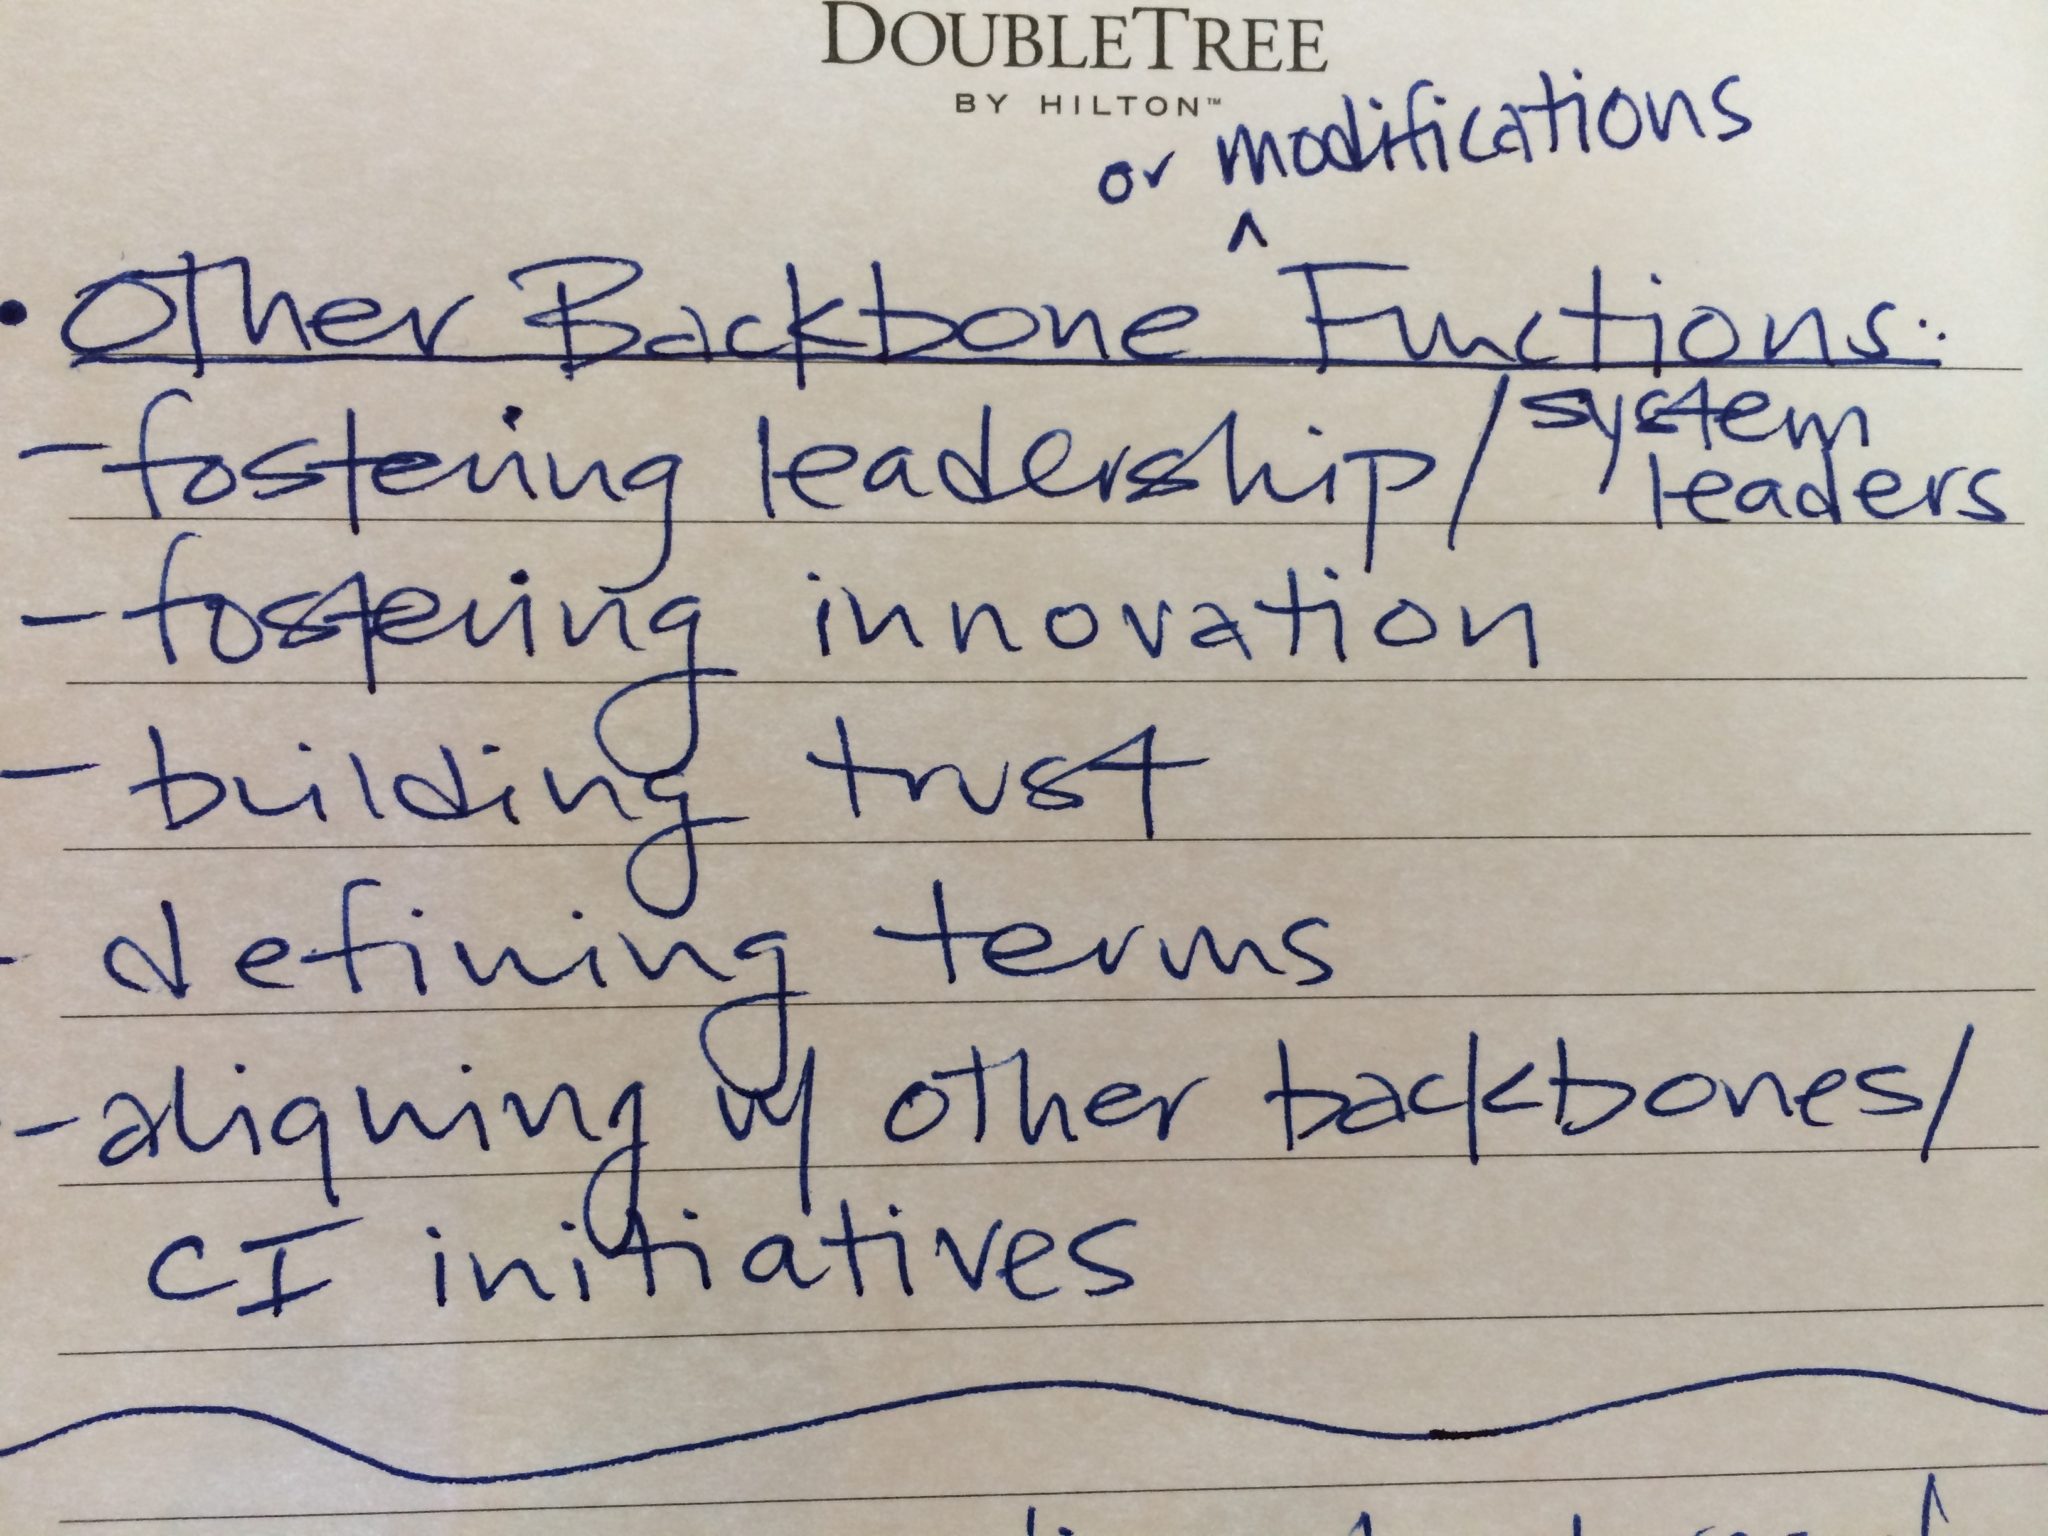 DOUBLETREE
BY HILTON™
or modifications
^
• Other Backbone Functions:
- fostering leadership/system
leaders
- fostering innovation
- building trust
- defining terms
- aligning w/ other backbones/
CI initiatives